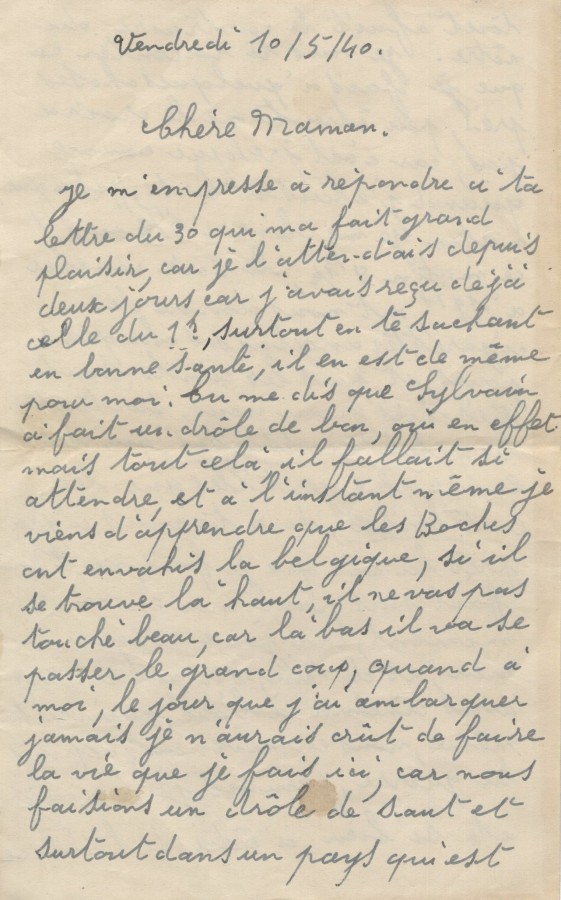 Vendredi 10/5/40.
Chère Maman.
je m'empresse à répondre a ta
lettre du 30 qui ma fait grand
plaisir, car je l'attendais depuis
deux jours car j'avais reçu dejà
celle du 1er, surtout en te sachant
en bonne santé, il en est de même
pour moi. tu me dis que Sylvain
a fait un drôle de bon, oui en effet
mais tout celà il fallait si
attendre, et à l'instant même je
viens d'apprendre que les Boches
ont envahis la belgique, si il
se trouve là haut, il ne vas pas
touché beau, car là bas il va se
passer le grand coup, quand à
moi, le jour que j'ai ambarquer
jamais je n'aurais crût de faire
la vie que je fais ici, car nous
faisions un drôle de saut et
surtout dans un pays qui est